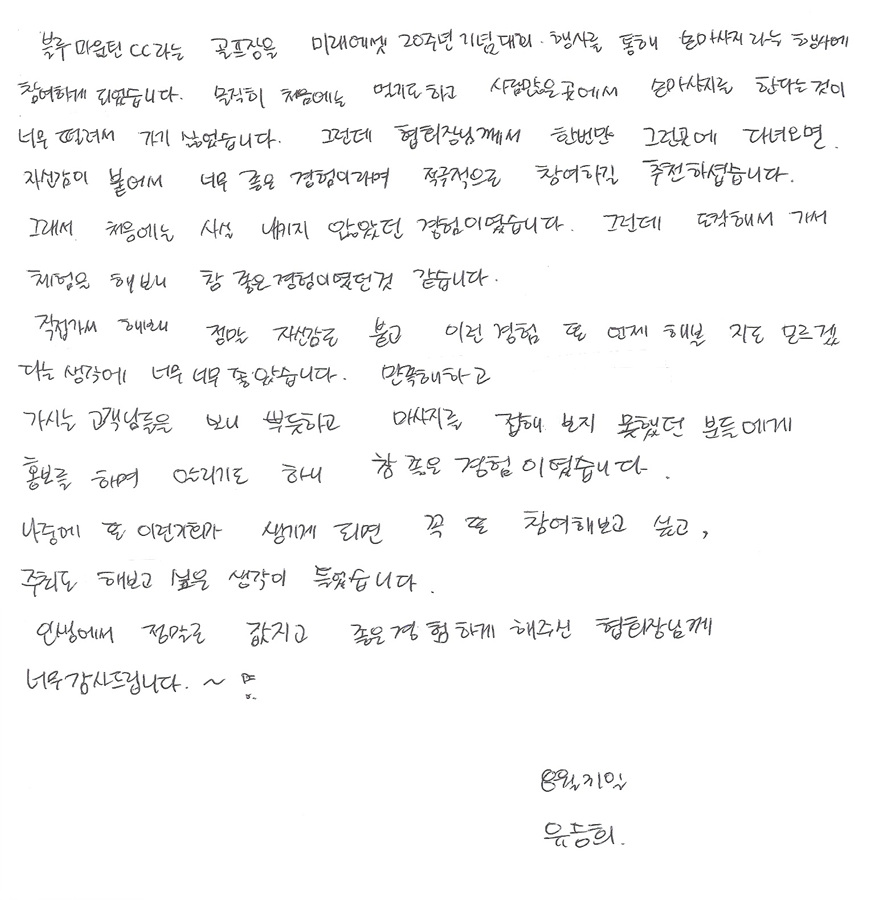 블루 마운틴 CC라는 골프장을 미래에셋 20주년 기념대회 행사를 통해 손마사지 라는 행사에
참여하게 되었습니다. 솔직히 처음에는 멀기도하고 사람많은곳에서 손마사지를 한다는것이
너무 떨려서 가기 싫었습니다. 그런데 협회장님께서 한번만 그런곳에 다녀오면
자신감이 붙어서 너무 좋은 경험이라며 적극적으로 참여하길 추천하셨습니다.
그래서 처음에는 사실 내키지 않았던 경험이였습니다. 그런데 도착해서 가서
체험을 해보니 참 좋은경험이였던것 같습니다.
직접가서 해보니 정말 자신감도 붙고 이런 경험 또 언제 해볼 지도 모르겠
다는 생각에 너무 너무 좋았습니다. 만족해하고
가시는 고객님들을 보니 뿌듯하고 마사지를 접해 보지 못했던 분들에게
홍보를 하며 알리기도 하니 참 좋은 경험이였습니다.
나중에 또 이런기회가 생기게 되면 꼭 또 참여해보고 싶고,
주최도 해보고 싶은 생각이 들었습니다.
인생에서 정말로 값지고 좋은경험하게 해주신 협회장님께
너무감사드립니다. ~
8월 21일